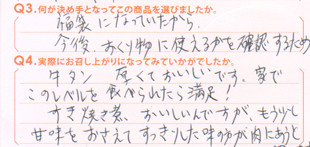 Q3.何が決め手となってこの商品を選びましたか。
福袋になっていたから。
今後、おくり物に使えるかを確認するため
Q4.実際にお召し上がりになってみていかがでしたか。
牛タン 厚くておいしいです。家で
このレベルを食べられたら満足!
すき焼き煮、おいしいんですが、もう少し
甘味をおさえてすっきりした味のが肉にあうと